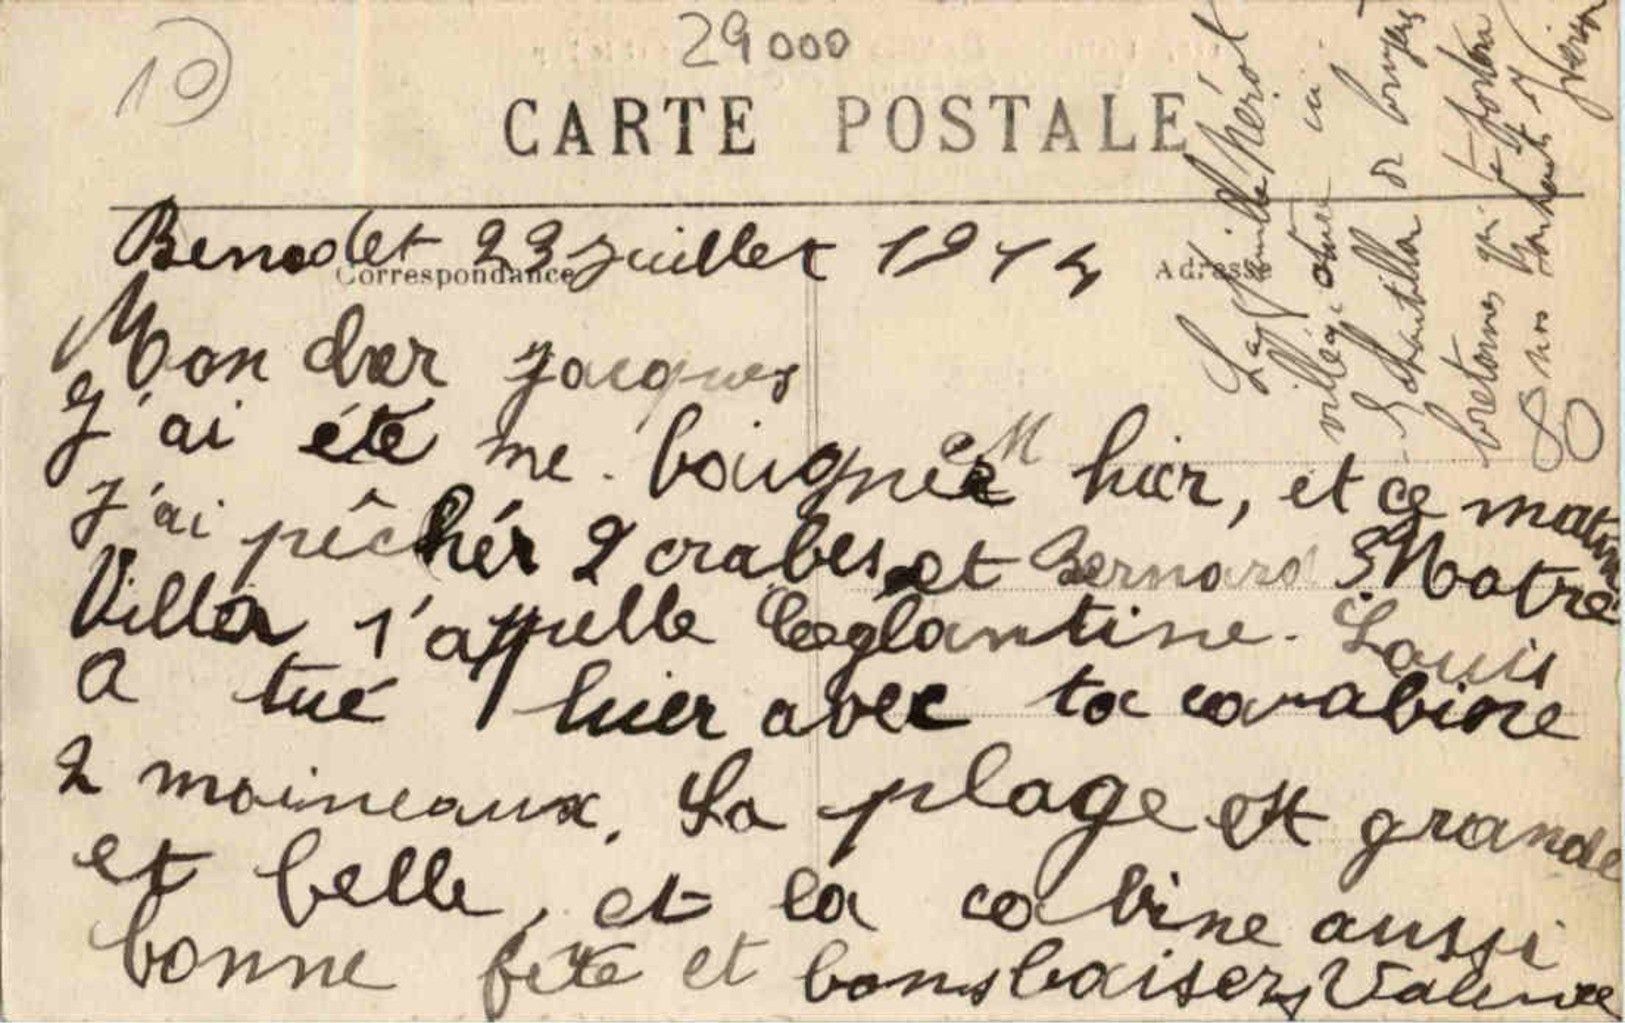 10
29000
CARTE POSTALE
Benodet 23 juillet 1914
Correspondance
Adresse
Mon cher Jacques
J'ai été me baignée hier, et ce matin
j'ai pêchér 2 crabes et Bernard 3 Notre
Villa s'appelle Eglantine. Louis
a tué hier avec ta carabine
2 moineaux. La plage est grande
et belle, et la cabine aussi
bonne fête et bons baisers Valentine
La famille
villégiature ici
Echantillon de
bretonnes qui
nos souhaits